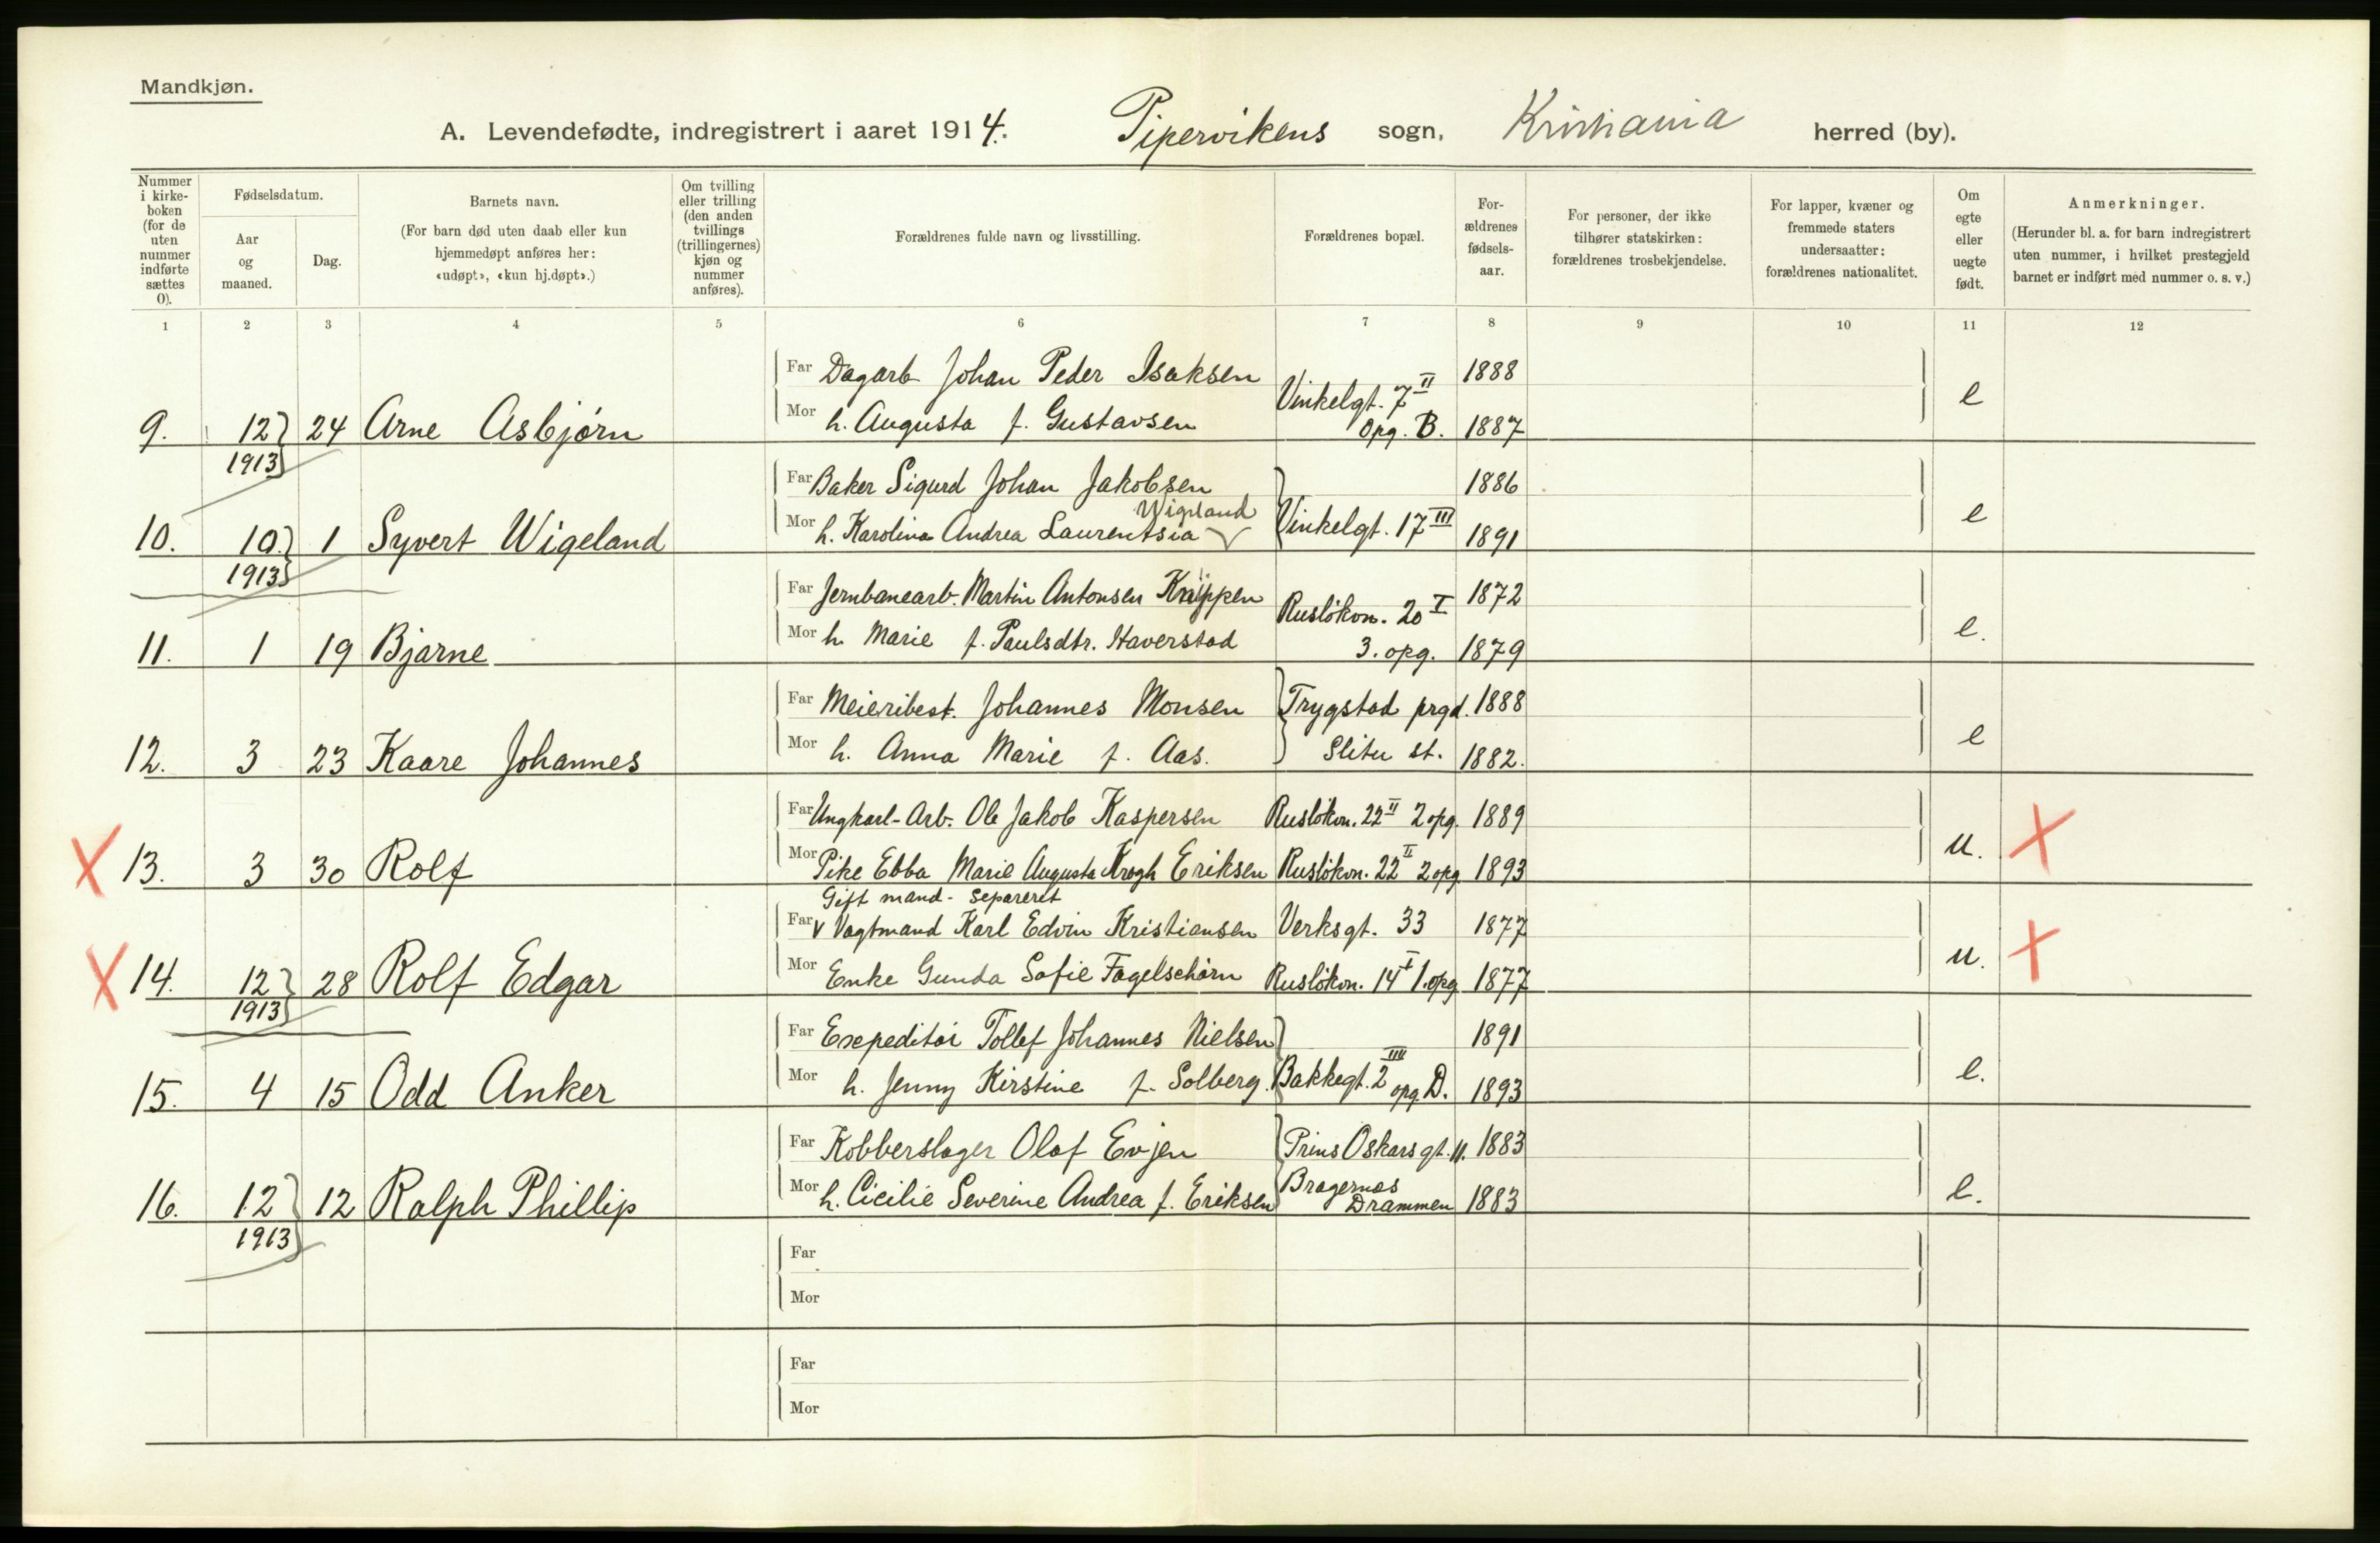 Mandkjøn.
A. Levendefødte, indregistrert i aaret 1914. Pipervikens sogn, Kristiania herred (by).
Nummer i kirke-boken (for de uten nummer indførte sættes 0).
Fødselsdatum.
Aar og maaned.
Dag.
Barnets navn.
(For barn død uten daab eller kun hjemmedøpt anføres her: «udøpt», «kun hj.døpt».)
Om tvilling eller trilling (den anden tvillings (trillingernes) kjøn og nummer anføres).
Forældrenes fulde navn og livsstilling.
Forældrenes bopæl.
For-ældrenes fødsels-aar.
For personer, der ikke tilhører statskirken: forældrenes trosbekjendelse.
For lapper, kvæner og fremmede staters undersaatter: forældrenes nationalitet.
Om egte eller uegte født.
Anmerkninger.
(Herunder bl. a. for barn indregistrert uten nummer, i hvilket prestegjeld barnet er indført med nummer o. s. v.)
1 2 3 4 5 6 7 8 9 10 11 12
Far Dagarb. Johan Peder Isaksen Vinkelgt. 7 II 1888
9. 12 24 Arne Asbjørn Mor h. Augusta f. Gustavsen Opg. B. 1887 e
1913
Far Baker Sigurd Johan Jakobsen 1886
Wigeland
10. 10. 1 Syvert Wigeland Mor h. Karolina Andrea Laurentsia Vinkelgt. 17 III 1891 e
1913
Far Jernbanearb. Martin Antonsen Knippen Rusløkon. 20 I 1872
11. 1 19 Bjarne Mor h. Marie f. Paulsdtr. Haverstad 3. opg. 1879 e.
Far Meieribest. Johannes Monsen Trygstad prgd. 1888
12. 3 23 Kaare Johannes Mor h. Anna Marie f. Aas. Slitu st. 1882. e
Far Ungkarl-Arb. Ole Jakob Kaspersen Rusløkon. 22 II 2 opg. 1889
X 13. 3 30 Rolf Mor Pike Ebba Marie Augusta Krogh Eriksen Rusløkon. 22 II 2 opg 1893 u. X
Gift mand - separeret
Far v Vagtmand Karl Edvin Kristiansen Verksgt. 33 1877
X 14. 12 28 Rolf Edgar Mor Enke Gunda Sofie Fagelschørn Rusløkon. 14 I 1. opg 1877 u. X
1913
Far Expeditør Tollef Johannes Nielsen 1891
15. 4 15 Odd Anker Mor h. Jenny Kirstine f. Solberg. Bakkegt. 2 IIII opg. D. 1893 e.
Far Kobberslager Olaf Evjen Prins Oskars gt. 11. 1883
16. 12 12 Ralph Phillip Mor h. Cicilie Severine Andrea f. Eriksen Bragernæs Drammen 1883 e.
1913
Far
Mor
Far
Mor